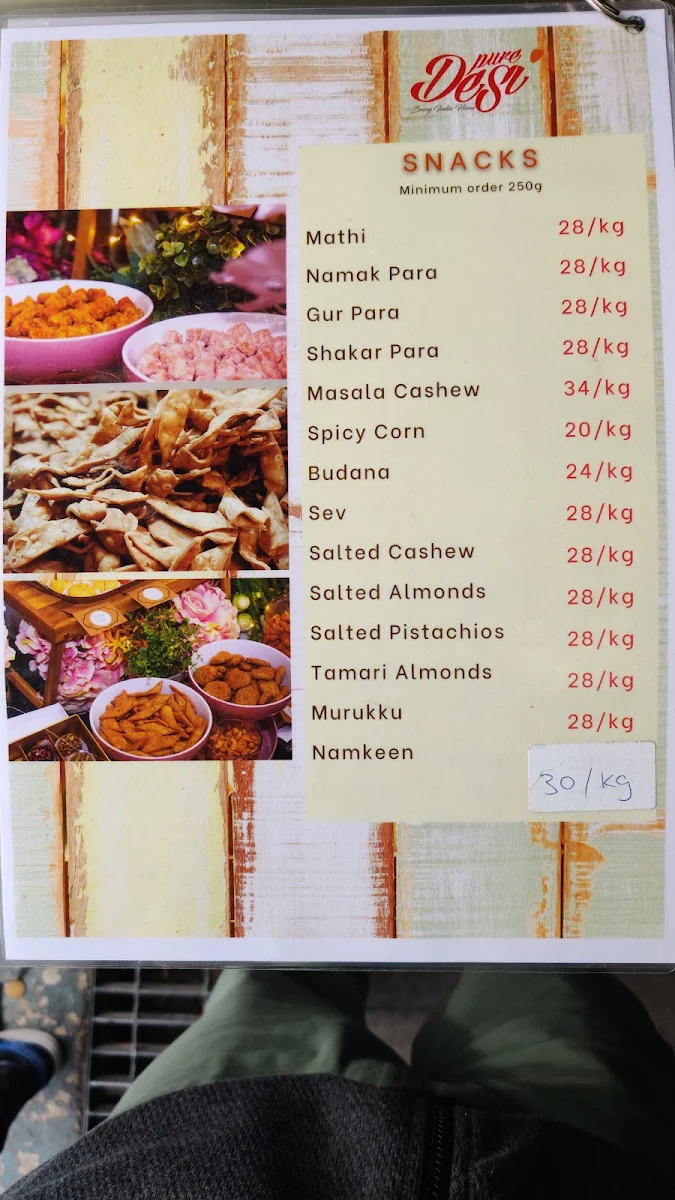 pure
Desi
Bring India Home
SNACKS
Minimum order 250g
Mathi 28/kg
Namak Para 28/kg
Gur Para 28/kg
Shakar Para 28/kg
Masala Cashew 34/kg
Spicy Corn 20/kg
Budana 24/kg
Sev 28/kg
Salted Cashew 28/kg
Salted Almonds 28/kg
Salted Pistachios 28/kg
Tamari Almonds 28/kg
Murukku 28/kg
Namkeen 30/kg